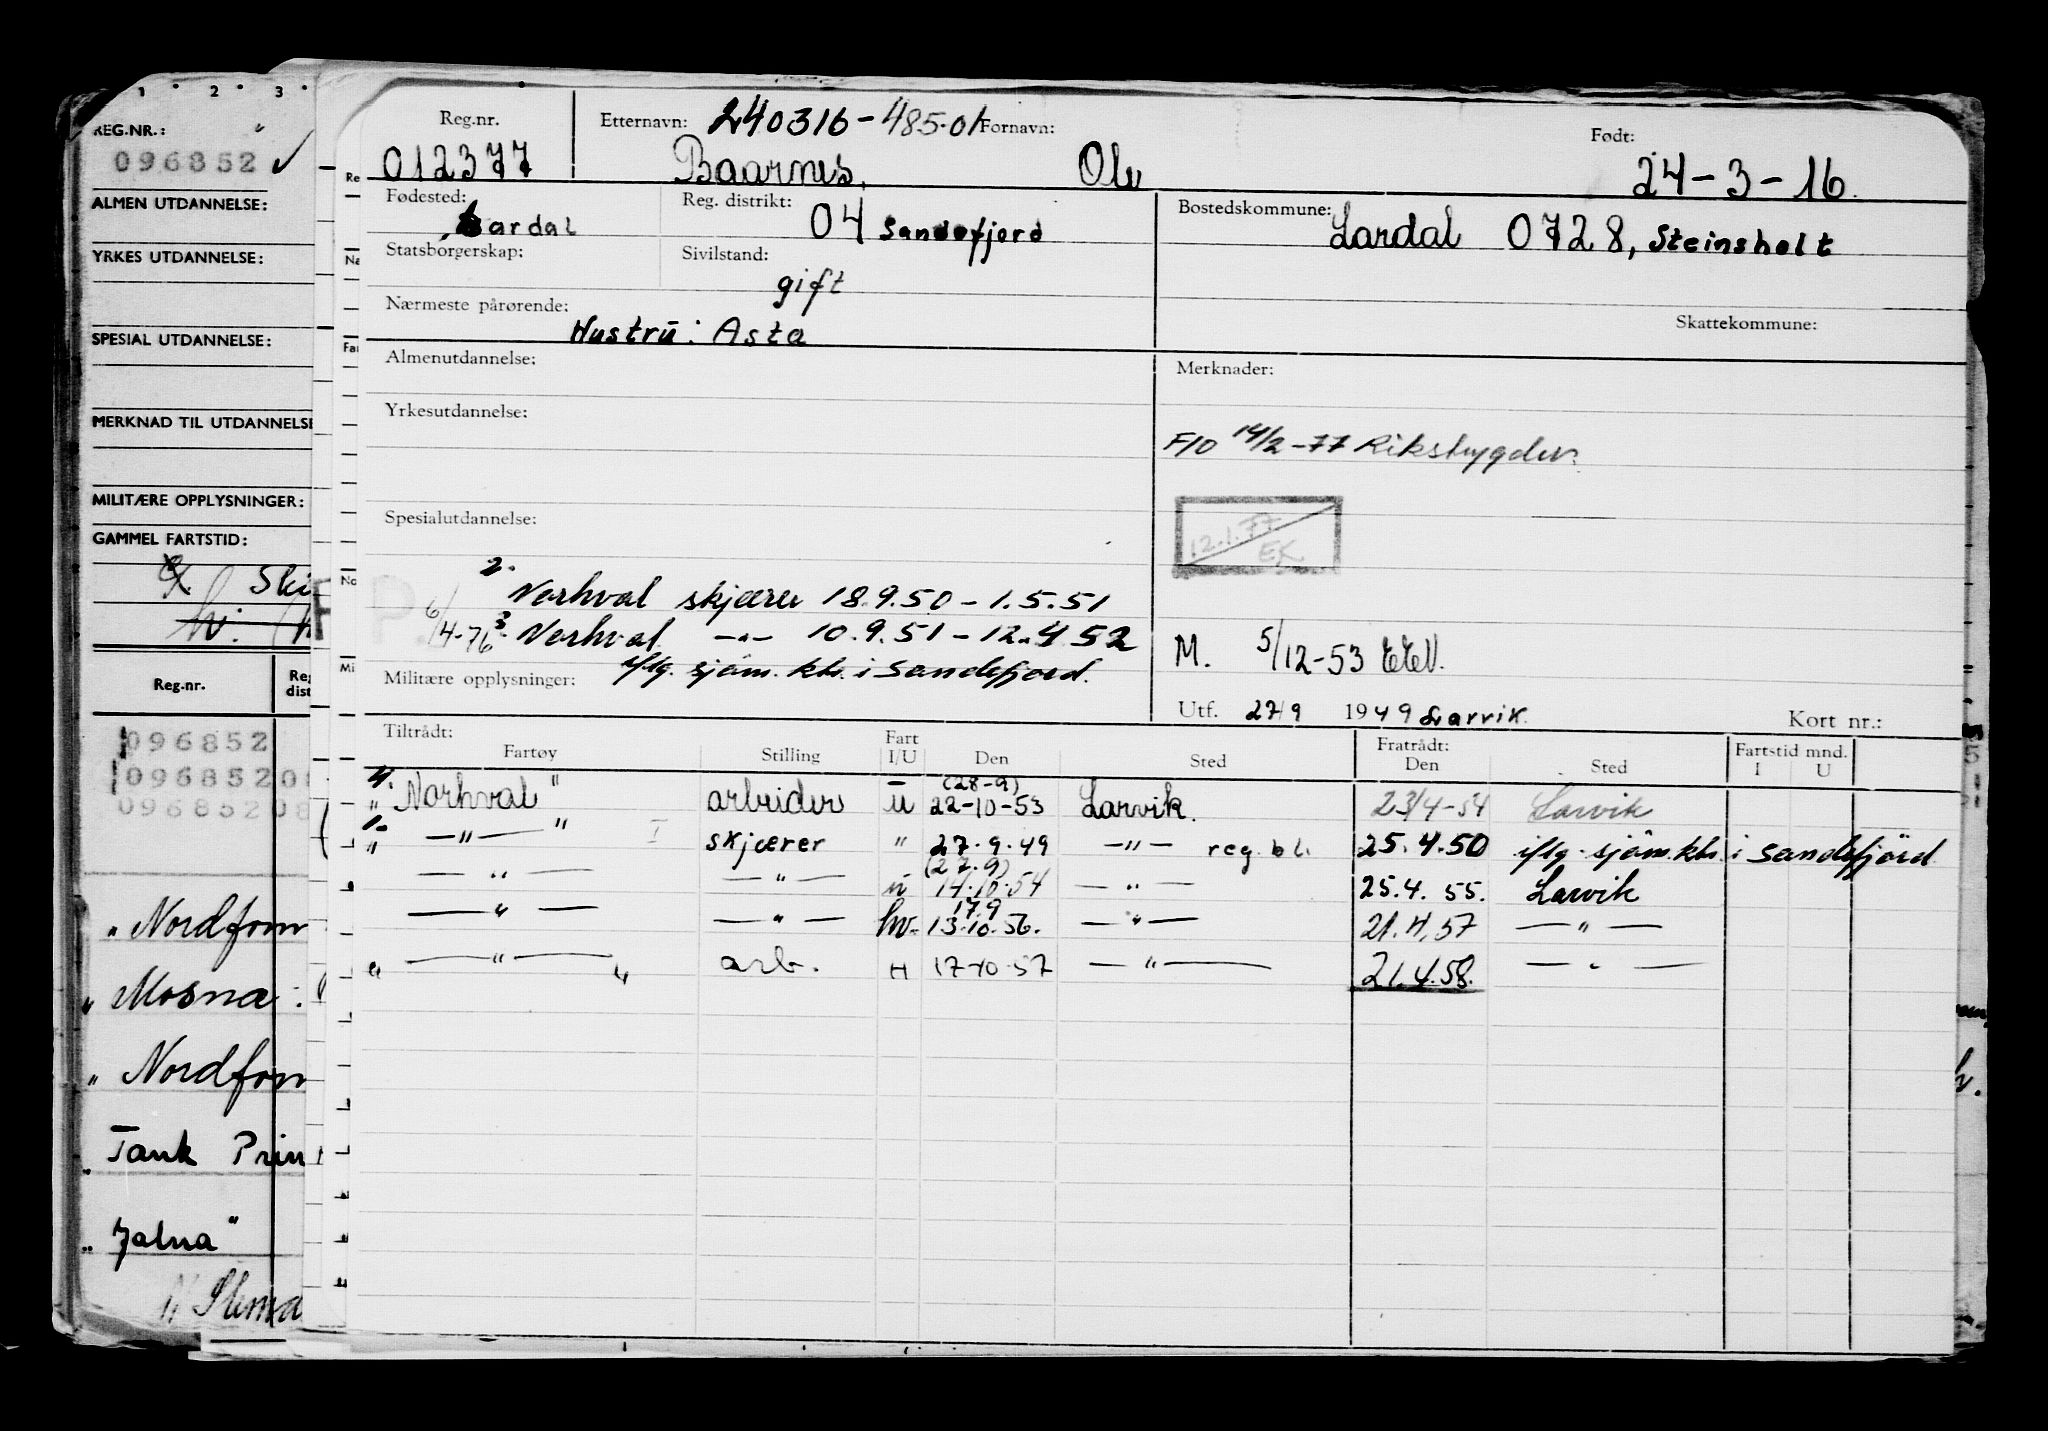 1 2 3
REG.NR.:
096852 ✓
ALMEN UTDANNELSE:
YRKES UTDANNELSE:
SPESIAL UTDANNELSE:
MERKNAD TIL UTDANNELSE
MILITÆRE OPPLYSNINGER:
GAMMEL FARTSTID:
Ski
hv.
Reg.nr. Reg dist
096852
096852 08
096852 08
" Nordfonn
" Mosna
" Nordfonn
" Tank Prin
" Jalna"
" Stema
Reg.nr. Etternavn: 240316-485-01 Fornavn: Født:
012377 Baarnes, Olv 24-3-16.
Fødested: Reg. distrikt: Bostedskommune:
Lardal 04 Sandefjord Lardal 0728, Steinsholt
Statsborgerskap: Sivilstand:
gift
Nærmeste pårørende: Skattekommune:
Hustru: Asta
Almenutdannelse: Merknader:
Yrkesutdannelse:
F10 14/2-77 Rikstrygdev.
Spesialutdannelse:
12.1.77
EK
2. Norhval skjærer 18.9.50 - 1.5.51
6/4-76 3. Norhval -"- 10.9.51 - 12.4.52
iflg. sjøm.ktr. i Sandefjord.
M. 5/12-53
Militære opplysninger:
Utf. 27/9 1949 Larvik. Kort nr.:
Tiltrådt: Fratrådt: Fartstid mnd.
Fartøy Stilling Fart I/U Den Sted Den Sted I U
4. (28-9)
" Norhval " arbeider U 22-10-53 Larvik. 23/4-54 Larvik
1. " -"- " I skjærer " 27.9.49 -"- reg.bl. 25.4.50 iflg. sjøm.ktr. i Sandefjord
(27.9)
-"- -"- U 14.10.54 -"- 25.4.55. Larvik
17.9
-"- -"- hv. 13.10.56. -"- 21.4.57 -"-
" -"- " arb. H 17-10-57 -"- 21.4.58. -"-